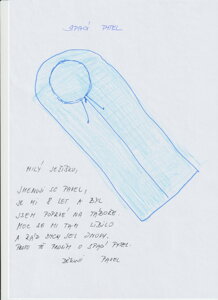 SPACÍ PYTEL
MILÝ JEŽÍŠKU,
JMENUJI SE PAVEL,
JE MI 8 LET A BYL
JSEM POPRVÉ NA TÁBOŘE
MOC SE MI TAM LÍBILO
A RÁD BYCH JEL ZNOVU.
PROTO TĚ PROSÍM O SPACÍ PYTEL.
DĚKUJI PAVEL